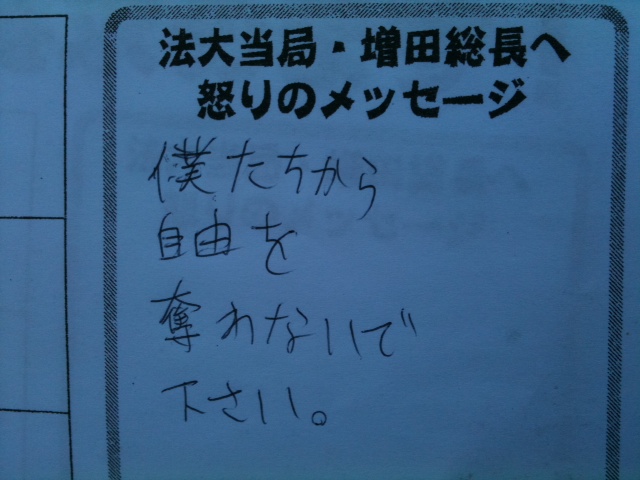 法大当局・増田総長へ
怒りのメッセージ
僕たちから
自由を
奪わないで
下さい。